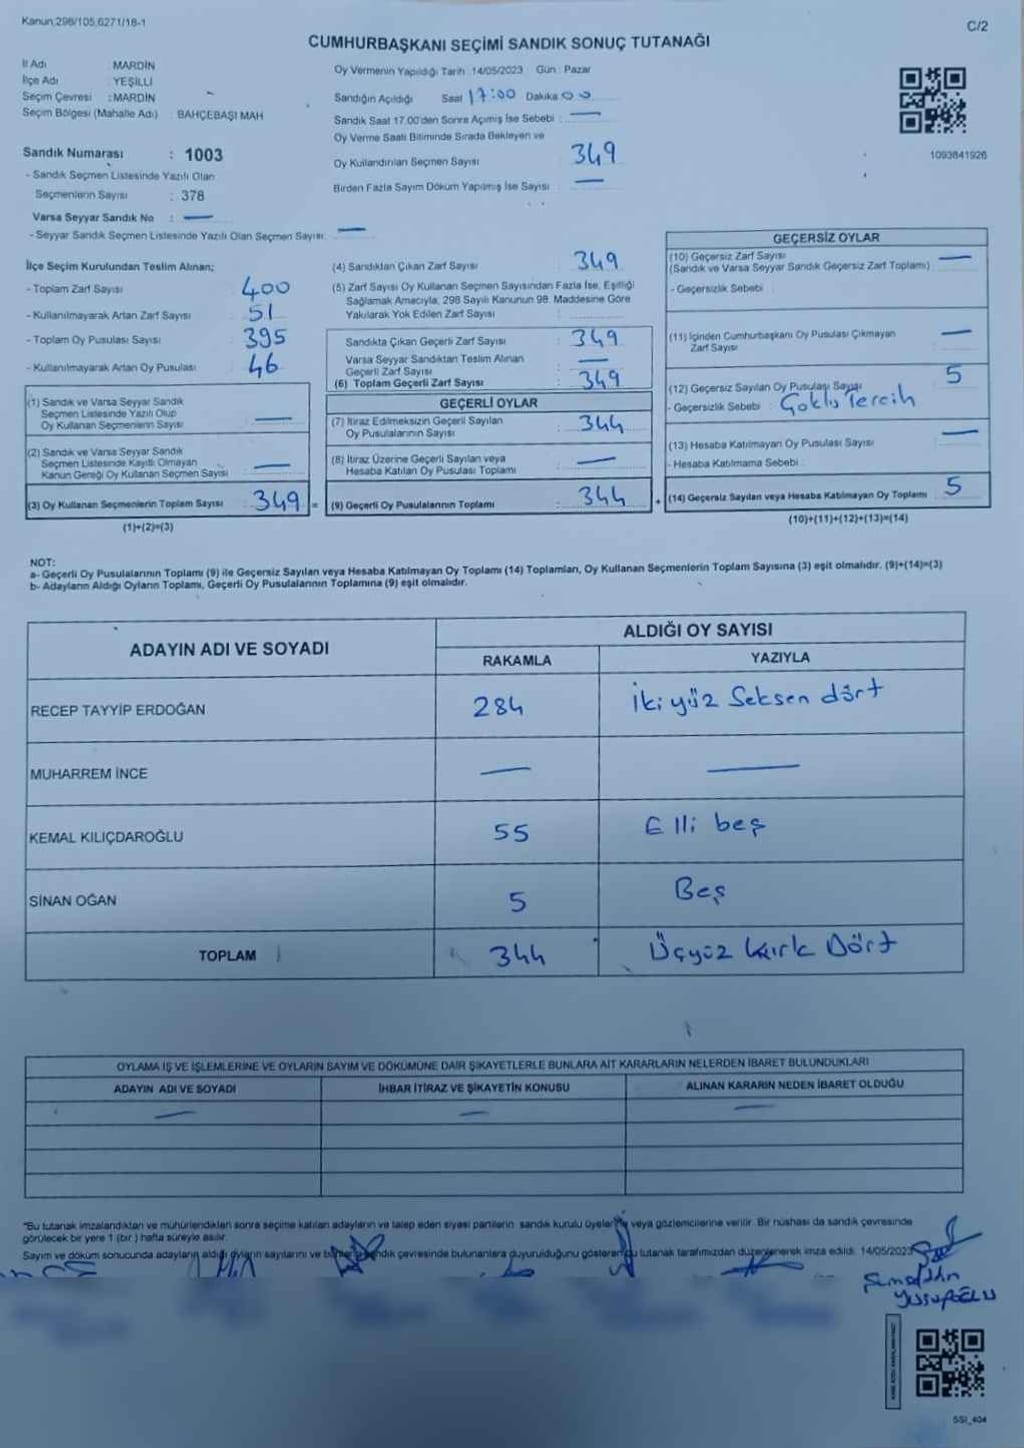 Kanun:298/105,6271/18-1
C/2
CUMHURBAŞKANI SEÇİMİ SANDIK SONUÇ TUTANAĞI
İl Adı MARDİN
İlçe Adı YEŞİLLİ
Seçim Çevresi : MARDİN
Seçim Bölgesi (Mahalle Adı) : BAHÇEBAŞI MAH
Sandık Numarası : 1003
- Sandık Seçmen Listesinde Yazılı Olan
Seçmenlerin Sayısı : 378
Varsa Seyyar Sandık No : —
- Seyyar Sandık Seçmen Listesinde Yazılı Olan Seçmen Sayısı: —
Oy Vermenin Yapıldığı Tarih :14/05/2023 Gün : Pazar
Sandığın Açıldığı Saat 17:00 Dakika 00
Sandık Saat 17.00'den Sonra Açımış İse Sebebi : —
Oy Verme Saati Bitiminde Sırada Bekleyen ve
Oy Kullandırılan Seçmen Sayısı 349
Birden Fazla Sayım Döküm Yapılmış İse Sayısı —
1093841926
İlçe Seçim Kurulundan Teslim Alınan;
- Toplam Zarf Sayısı 400
- Kullanılmayarak Artan Zarf Sayısı 51
- Toplam Oy Pusulası Sayısı 395
- Kullanılmayarak Artan Oy Pusulası 46
(1) Sandık ve Varsa Seyyar Sandık
Seçmen Listesinde Yazılı Olup
Oy Kullanan Seçmenlerin Sayısı —
(2) Sandık ve Varsa Seyyar Sandık
Seçmen Listesinde Kayıtlı Olmayan
Kanun Gereği Oy Kullanan Seçmen Sayısı —
(3) Oy Kullanan Seçmenlerin Toplam Sayısı 349 =
(1)+(2)=(3)
(4) Sandıktan Çıkan Zarf Sayısı 349
(5) Zarf Sayısı Oy Kullanan Seçmen Sayısından Fazla İse, Eşitliği
Sağlamak Amacıyla, 298 Sayılı Kanunun 98. Maddesine Göre
Yakılarak Yok Edilen Zarf Sayısı
Sandıkta Çıkan Geçerli Zarf Sayısı : 349
Varsa Seyyar Sandıktan Teslim Alınan
Geçerli Zarf Sayısı —
(6) Toplam Geçerli Zarf Sayısı : 349
GEÇERLİ OYLAR
(7) İtiraz Edilmeksizin Geçerli Sayılan
Oy Pusulalarının Sayısı 344
(8) İtiraz Üzerine Geçerli Sayılan veya
Hesaba Katılan Oy Pusulası Toplamı —
(9) Geçerli Oy Pusulalarının Toplamı : 344 +
GEÇERSİZ OYLAR
(10) Geçersiz Zarf Sayısı —
(Sandık ve Varsa Seyyar Sandık Geçersiz Zarf Toplamı)
- Geçersizlik Sebebi
(11) İçinden Cumhurbaşkanı Oy Pusulası Çıkmayan
Zarf Sayısı —
(12) Geçersiz Sayılan Oy Pusulası Sayısı 5
- Geçersizlik Sebebi : Çoklu Tercih
(13) Hesaba Katılmayan Oy Pusulası Sayısı —
- Hesaba Katılmama Sebebi :
(14) Geçersiz Sayılan veya Hesaba Katılmayan Oy Toplamı 5
(10)+(11)+(12)+(13)=(14)
NOT:
a- Geçerli Oy Pusulalarının Toplamı (9) ile Geçersiz Sayılan veya Hesaba Katılmayan Oy Toplamı (14) Toplamları, Oy Kullanan Seçmenlerin Toplam Sayısına (3) eşit olmalıdır. (9)+(14)=(3)
b- Adayların Aldığı Oyların Toplamı, Geçerli Oy Pusulalarının Toplamına (9) eşit olmalıdır.
ADAYIN ADI VE SOYADI
ALDIĞI OY SAYISI
RAKAMLA YAZIYLA
RECEP TAYYİP ERDOĞAN 284 İki yüz Seksen dört
MUHARREM İNCE — —
KEMAL KILIÇDAROĞLU 55 Elli beş
SİNAN OĞAN 5 Beş
TOPLAM 344 Üçyüz Kırk Dört
OYLAMA İŞ VE İŞLEMLERİNE VE OYLARIN SAYIM VE DÖKÜMÜNE DAİR ŞİKAYETLERLE BUNLARA AİT KARARLARIN NELERDEN İBARET BULUNDUKLARI
ADAYIN ADI VE SOYADI İHBAR İTİRAZ VE ŞİKAYETİN KONUSU ALINAN KARARIN NEDEN İBARET OLDUĞU
— — —
"Bu tutanak imzalandıktan ve mühürlendikten sonra seçime katılan adayların ve talep eden siyasi partilerin sandık kurulu üyelerine veya gözlemcilerine verilir. Bir nüshası da sandık çevresinde
görülecek bir yere 1 (bir ) hafta süreyle asılır.
Sayım ve döküm sonucunda adayların aldığı oyların sayılarını ve sandık çevresinde bulunanlara duyurulduğunu gösteren bu tutanak tarafımızdan düzenlenerek imza edildi. 14/05/2023
YUSUFOĞLU
SSI_404